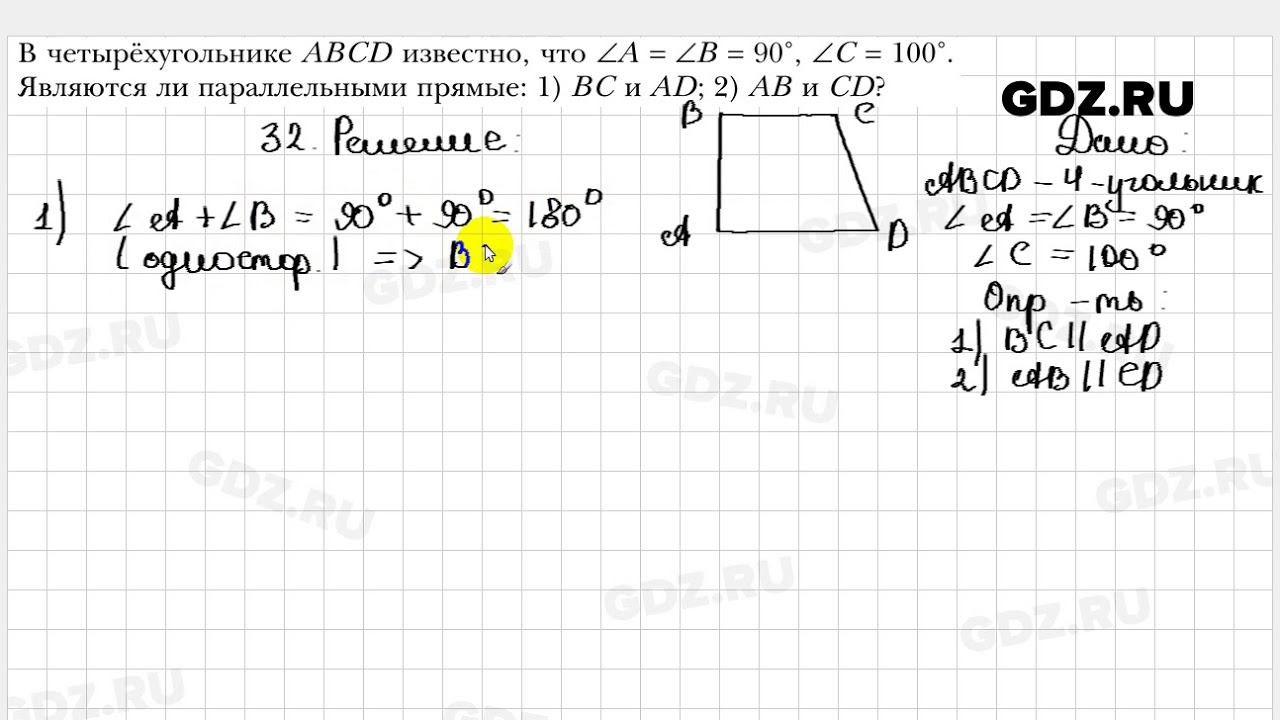 В четырёхугольнике ABCD известно, что ∠A = ∠B = 90°, ∠C = 100°.
Являются ли параллельными прямые: 1) BC и AD; 2) AB и CD?
GDZ.RU
32. Решение:
B
C
A
D
Дано:
ABCD – 4-угольник
∠A = ∠B = 90°
∠C = 100°
Опр-ть:
1) BC || AD
2) AB || CD
1) ∠A + ∠B = 90° + 90° = 180°
(одностор.) => B
GDZ.RU
GDZ.RU
GDZ.RU
GDZ.RU
GDZ.RU
GDZ.RU
GDZ.RU
GDZ.RU
GDZ.RU